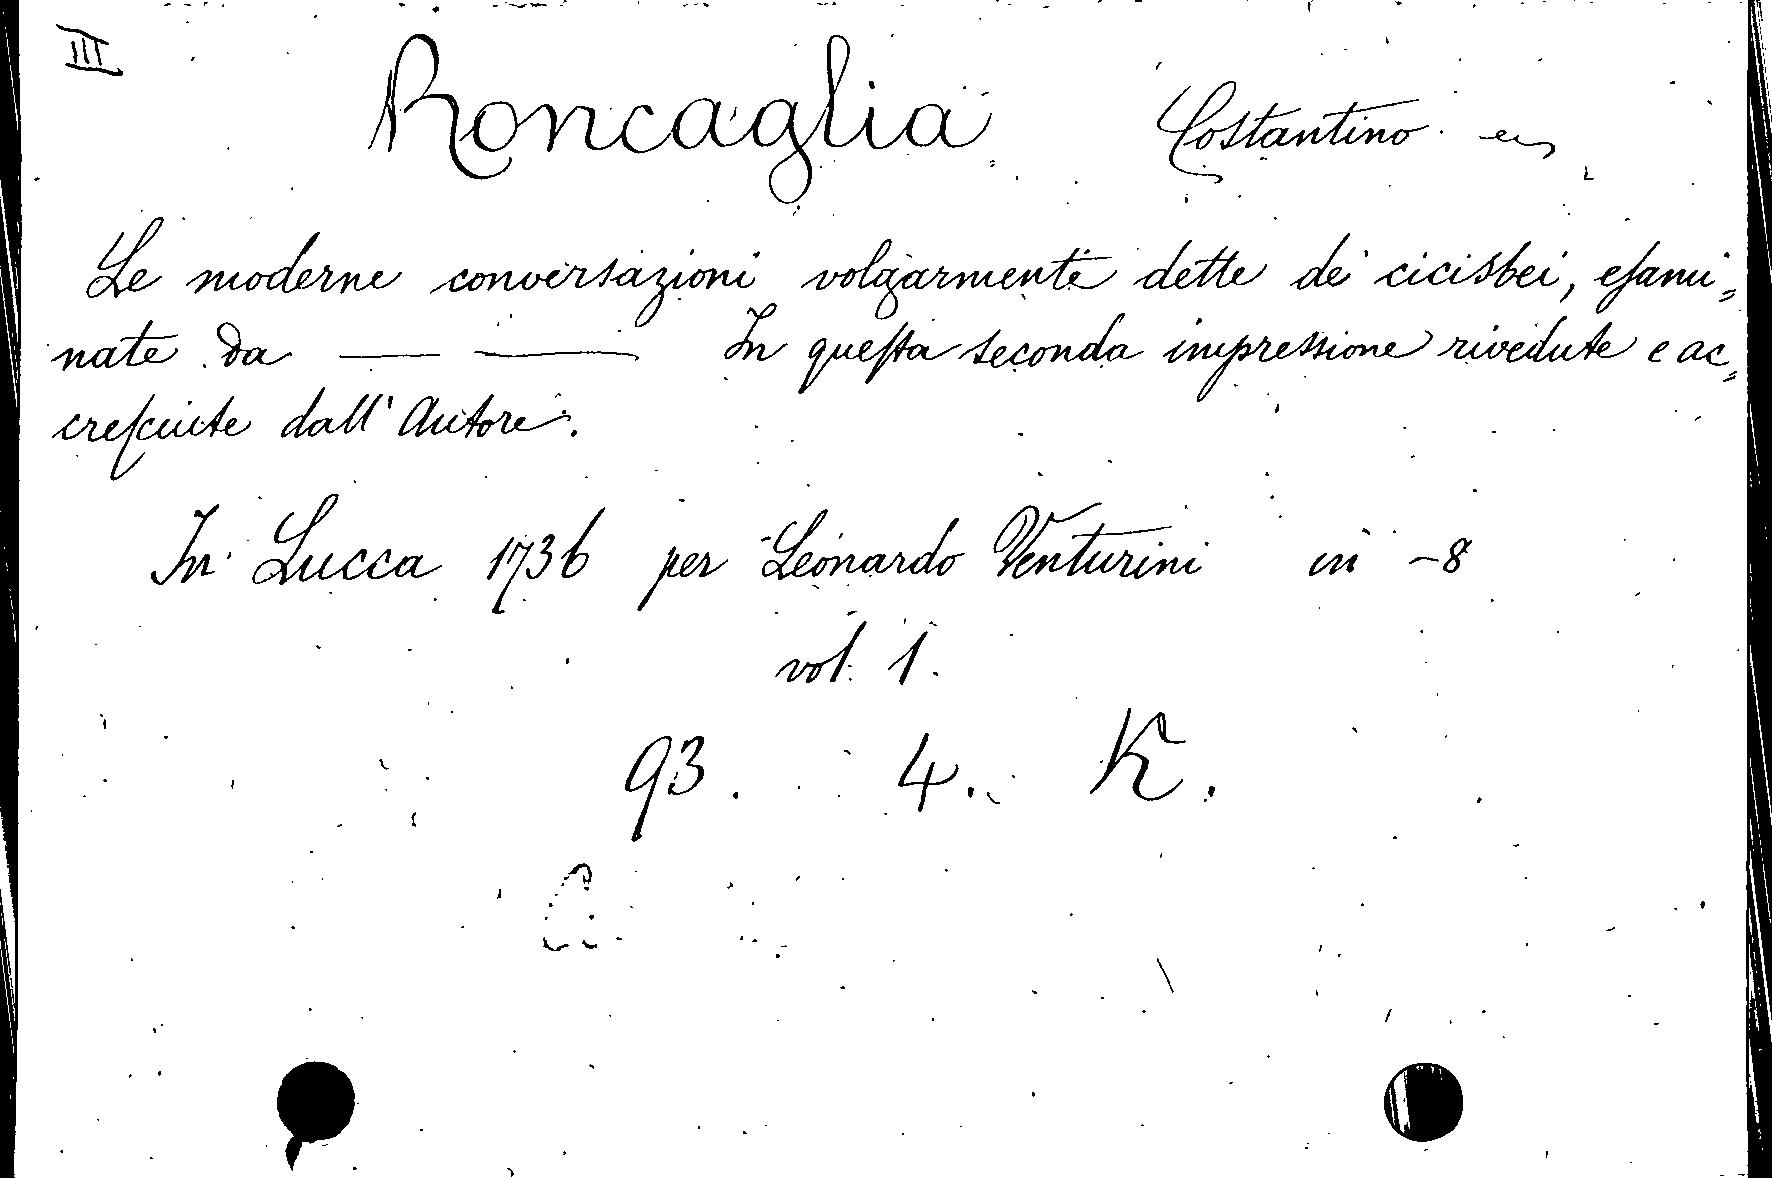 III
Roncaglia Costantino
Le moderne conversazioni volgarmente dette dei cicisbei, eſami=
nate da —— —— In queſta seconda impressione rivedute e ac=
creſciute dall'Autore.
In Lucca 1736 per Leonardo Venturini in -8
vol. 1.
93. 4. K.